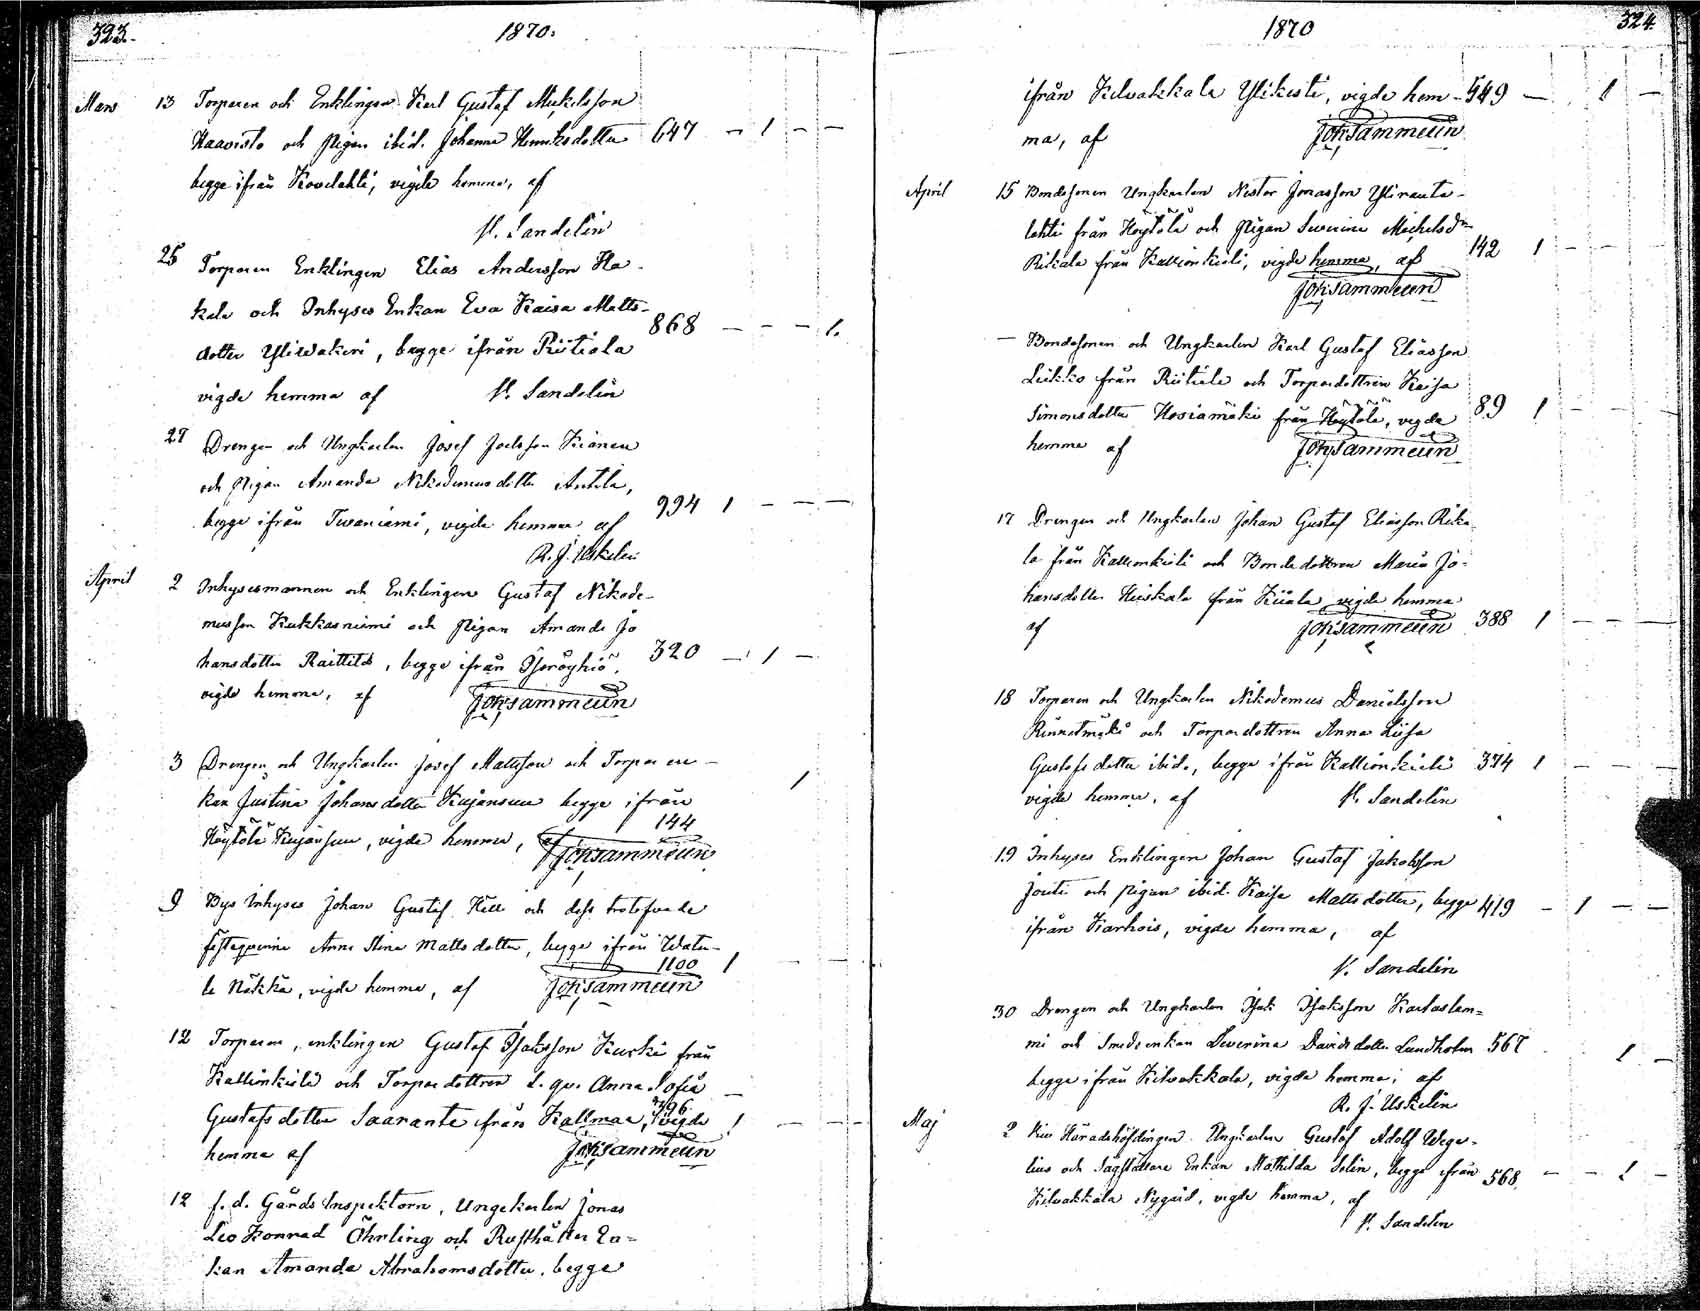 323.
1870.
Mars 13 Torparen och Enklingen Karl Gustaf Mickelsson
Haavisto och Pigan ibid. Johanna Henriksdotter 647 - 1 - -
begge ifrån Kovelahti, vigde hemma, af
V. Sandelin
25 Torparen Enklingen Elias Andersson Ha-
kala och Inhyses Enkan Eva Kaisa Matts-
868 - - - 1.
dotter Yliwakeri, begge ifrån Riitiala
vigde hemma af V. Sandelin
27 Drengen och Ungkarlen Josef Joelsson Kiänen
och Pigan Amanda Nikodemusdotter Antila,
994 1 - - -
begge ifrån Twaniemi, vigde hemma af
R. J. Uskelin
April 2 Inhysesmannen och Enklingen Gustaf Nikode-
musson Kukkasniemi och Pigan Amanda Jo
320 - 1 -
hansdotter Raittila, begge ifrån
vigde hemma, af Joh Sammelin
3 Drengen och Ungkarlen Josef Mattsson och Torpar en-
1
kan Justina Johansdotter Kujansuu begge ifrån
144
Höytölä Kujansuu, vigde hemma, af Joh Sammelin
9 Bys Inhyses Johan Gustaf och dess trolofvade
fästeqvinna Anna Stina Mattsdotter, begge ifrån Watu-
1100 1 - -
la Näkkä, vigde hemma, af Joh Sammelin
12 Torparen, enklingen Gustaf Isaksson Kurki från
Kallionkieli och Torparedottren L. qv. Anna Sofia
796
Gustafsdotter Saaranta ifrån Kallmaa, vigde 1 - - -
hemma af Joh Sammelin
12 f. d. Gårds Inspektorn, Ungkarlen Jonas
Leo Konrad Öhrling och Rusthållar En=
kan Amanda Abrahamsdotter, begge
1870
324.
ifrån Kilvakkala Ylikesti, vigde hem- 549 - 1 -
ma, af Joh Sammelin
April 15 Bondesonen Ungkarlen Nestor Jonasson Yliranta-
lahti från Höytölä och Pigan Severina Michelsdr
Rikala från Kallionkieli, vigde hemma, af 142 1 - - -
Joh Sammelin
- Bondesonen och Ungkarlen Karl Gustaf Eliasson
Leikko från Riitiala och Torparedottren Kaisa
Simonsdotter Hosiamäki från Höytölä, vigde 89 1 - - -
hemma af Joh Sammelin
17 Drengen och Ungkarlen Johan Gustaf Eliasson Rika
la från Kallionkieli och Bondedottren Maria Jo-
hansdotter Heiskala från Kiiala, vigde hemma
af Joh Sammelin 388 1 - - -
18 Torparen och Ungkarlen Nikodemus Danielsson
Rinnetmäki och Torparedottren Anna Liisa
Gustafsdotter ibid., begge ifrån Kallionkieli 374 1 - - -
vigde hemma, af V. Sandelin
19 Inhyses Enklingen Johan Gustaf Jakobsson
Jouti och Pigan ibid. Kaisa Mattsdotter, begge 419 - 1 - -
ifrån Karhois, vigde hemma, af
V. Sandelin
30 Drengen och Ungkarlen Isak Isaksson Kartaslam=
mi och Smedsenkan Severina Davidsdotter Lundholm 567 1 -
begge ifrån Kilvakkala, vigde hemma, af
R. J. Uskelin
Maj 2 Vice Häradshöfdingen Ungkarlen Gustaf Adolf Wege-
lius och Enkan Mathilda Selin, begge ifrån 568. - - 1 -
Kilvakkala Nygård, vigde hemma, af
V. Sandelin